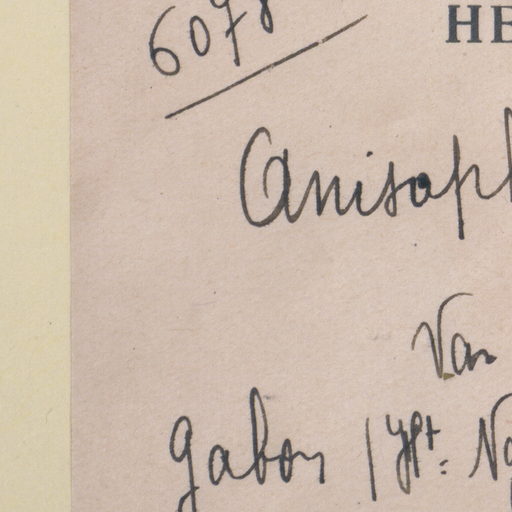 6078
HE
Anisoph
Van
Gabon (Ht. N